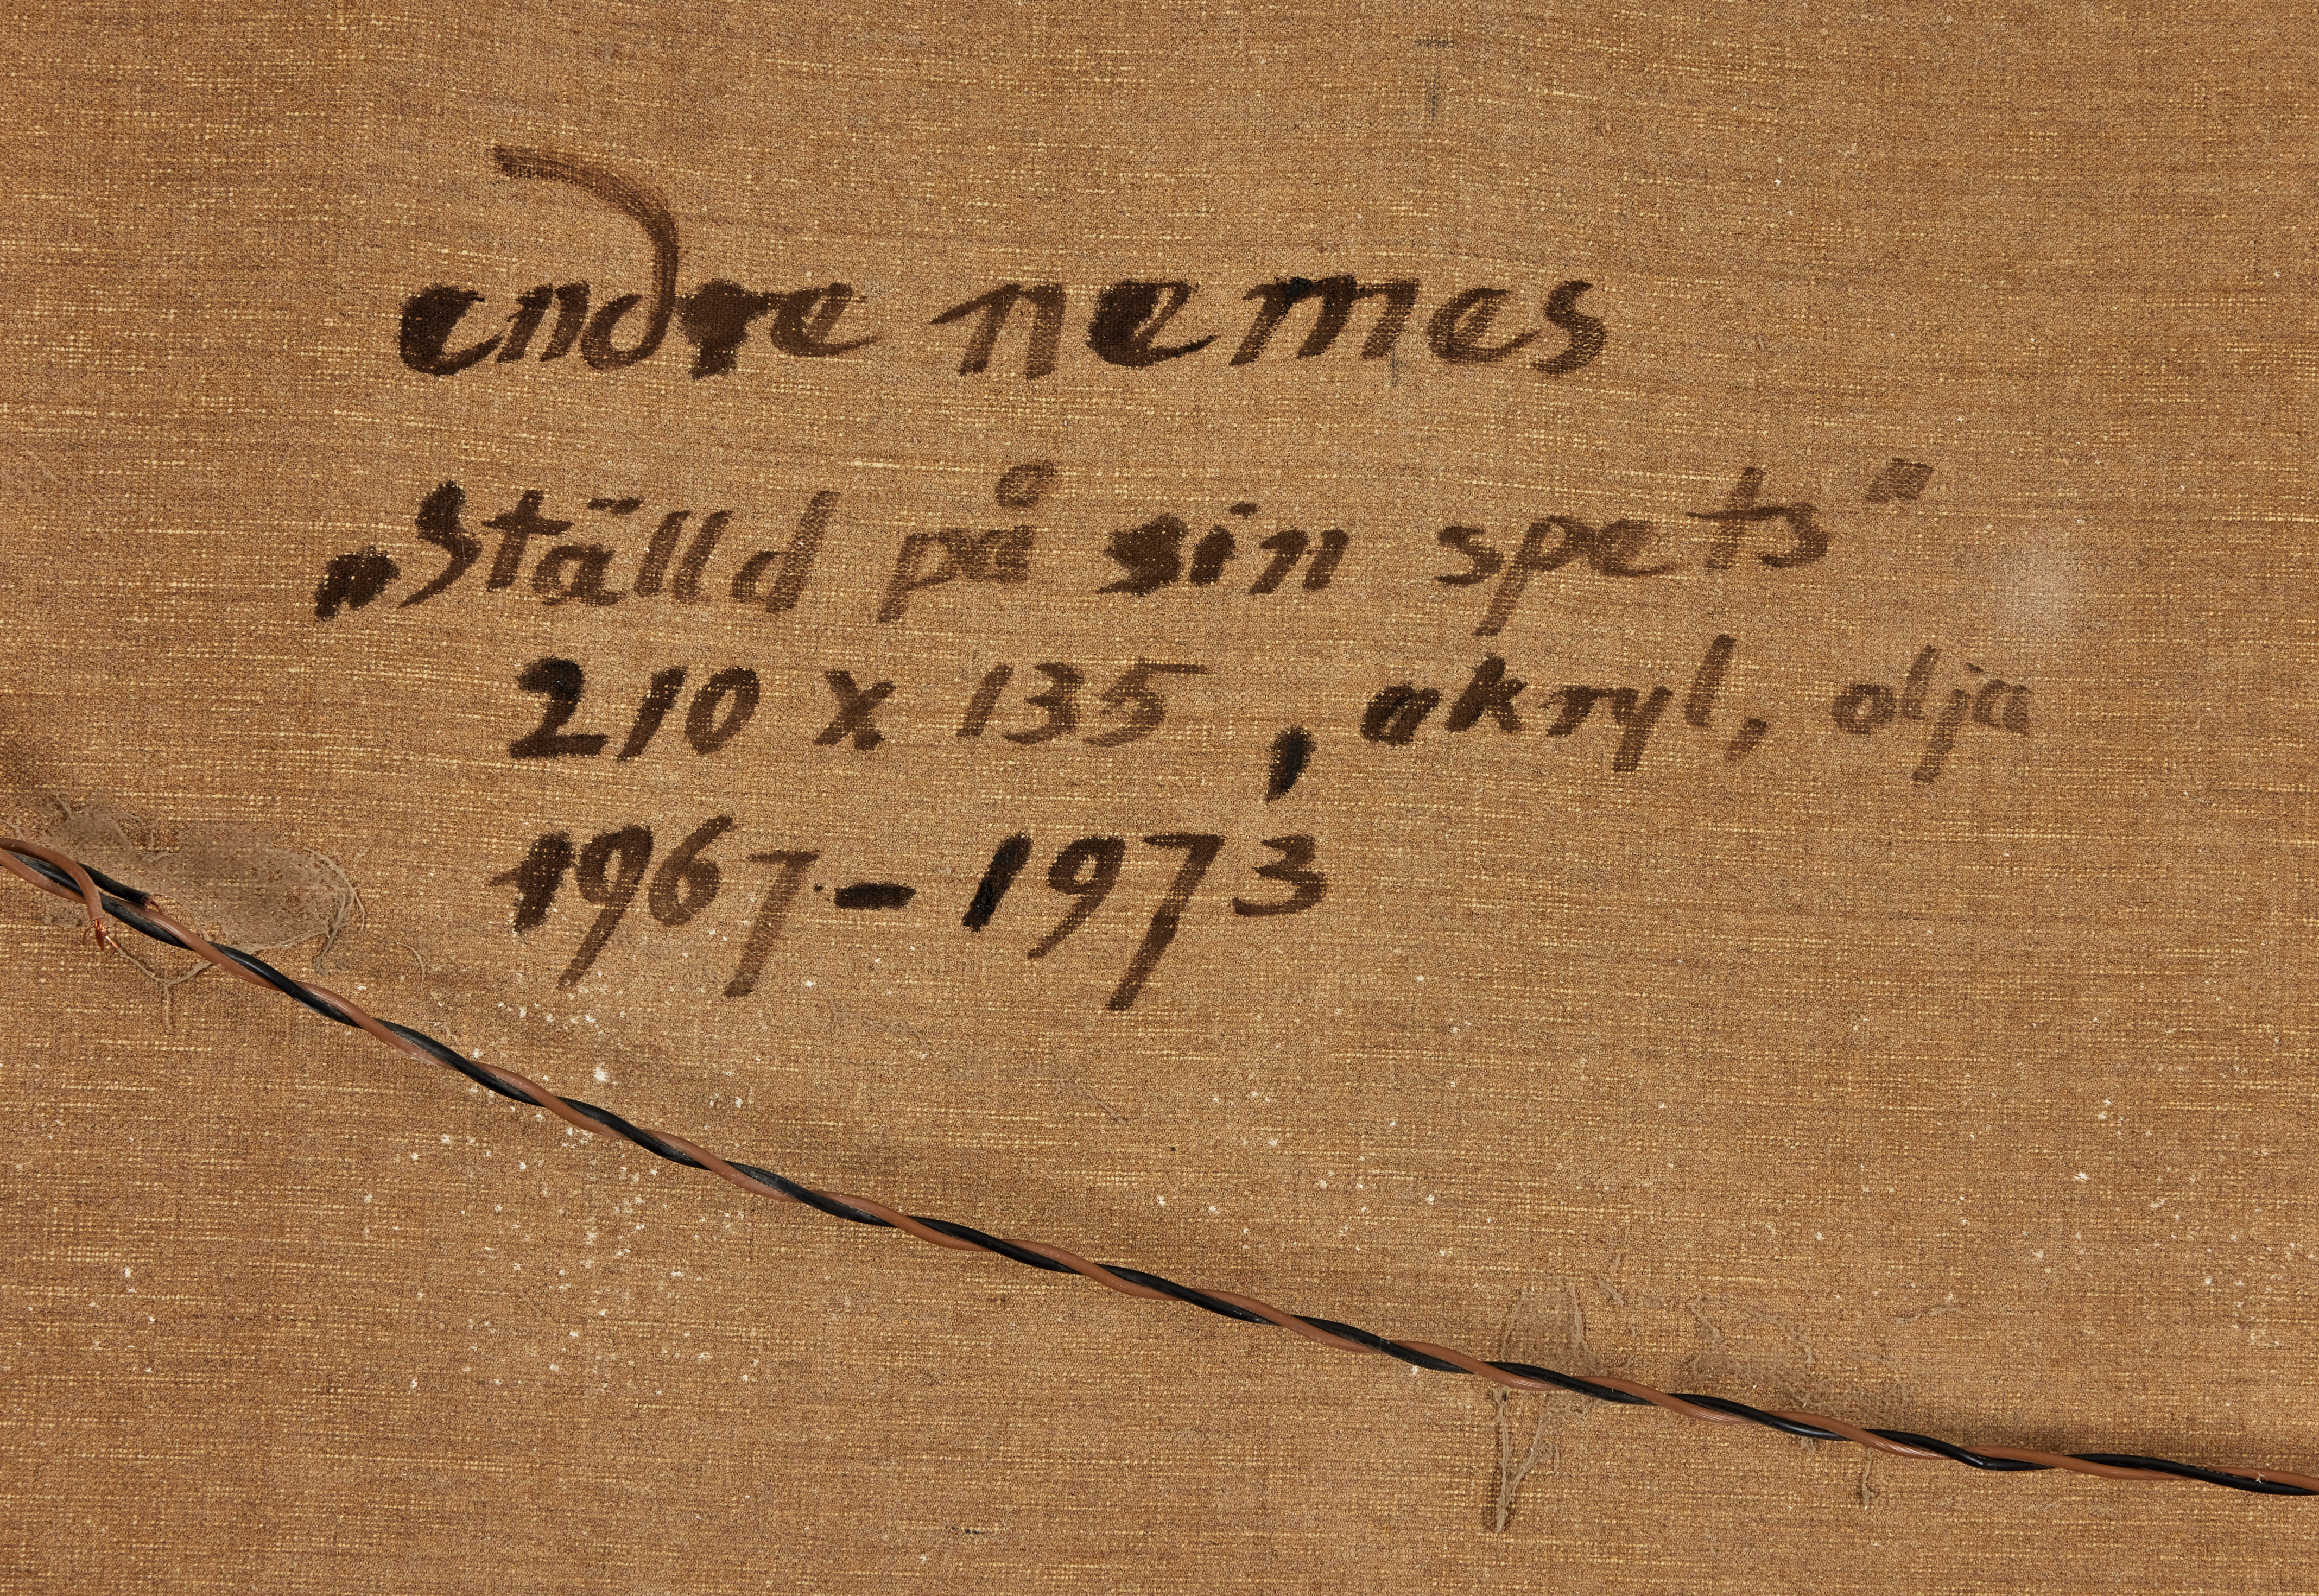 endre nemes
„Ställd på sin spets"
210 x 135, akryl, olja
1967-1973